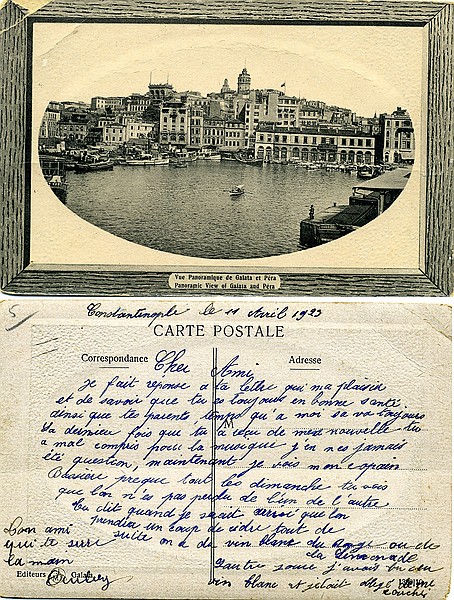 Vue Panoramique de Galata et Péra
Panoramic View of Galata and Péra
Constantinople le 11 Avril 1923
CARTE POSTALE
Correspondance
Adresse
Cher Ami
Je fait reponse a ta lettre qui ma plaisir
et de savoir que tu es toujours en bonne santé
ainsi que tes parents, temps qu'a moi sa va toujours
La dernier fois que tu a reçu de mes nouvelle tu
a mal compris pour la musique j'en nes jamais
été question, maintenant je vois mon copain
preque tout les dimanche tu vois
que l'on n'es pas perdu de l'un de l'autre
Tu dit quand je serait que l'on
prendra un coup de cidre tout de
suite on a de vin blanc du rouge ou de
la limonade
l'autre jour j'avait bu du
vin blanc et j'etait
coucher
Ton ami
qui te serre
la main
Editeurs
Galata